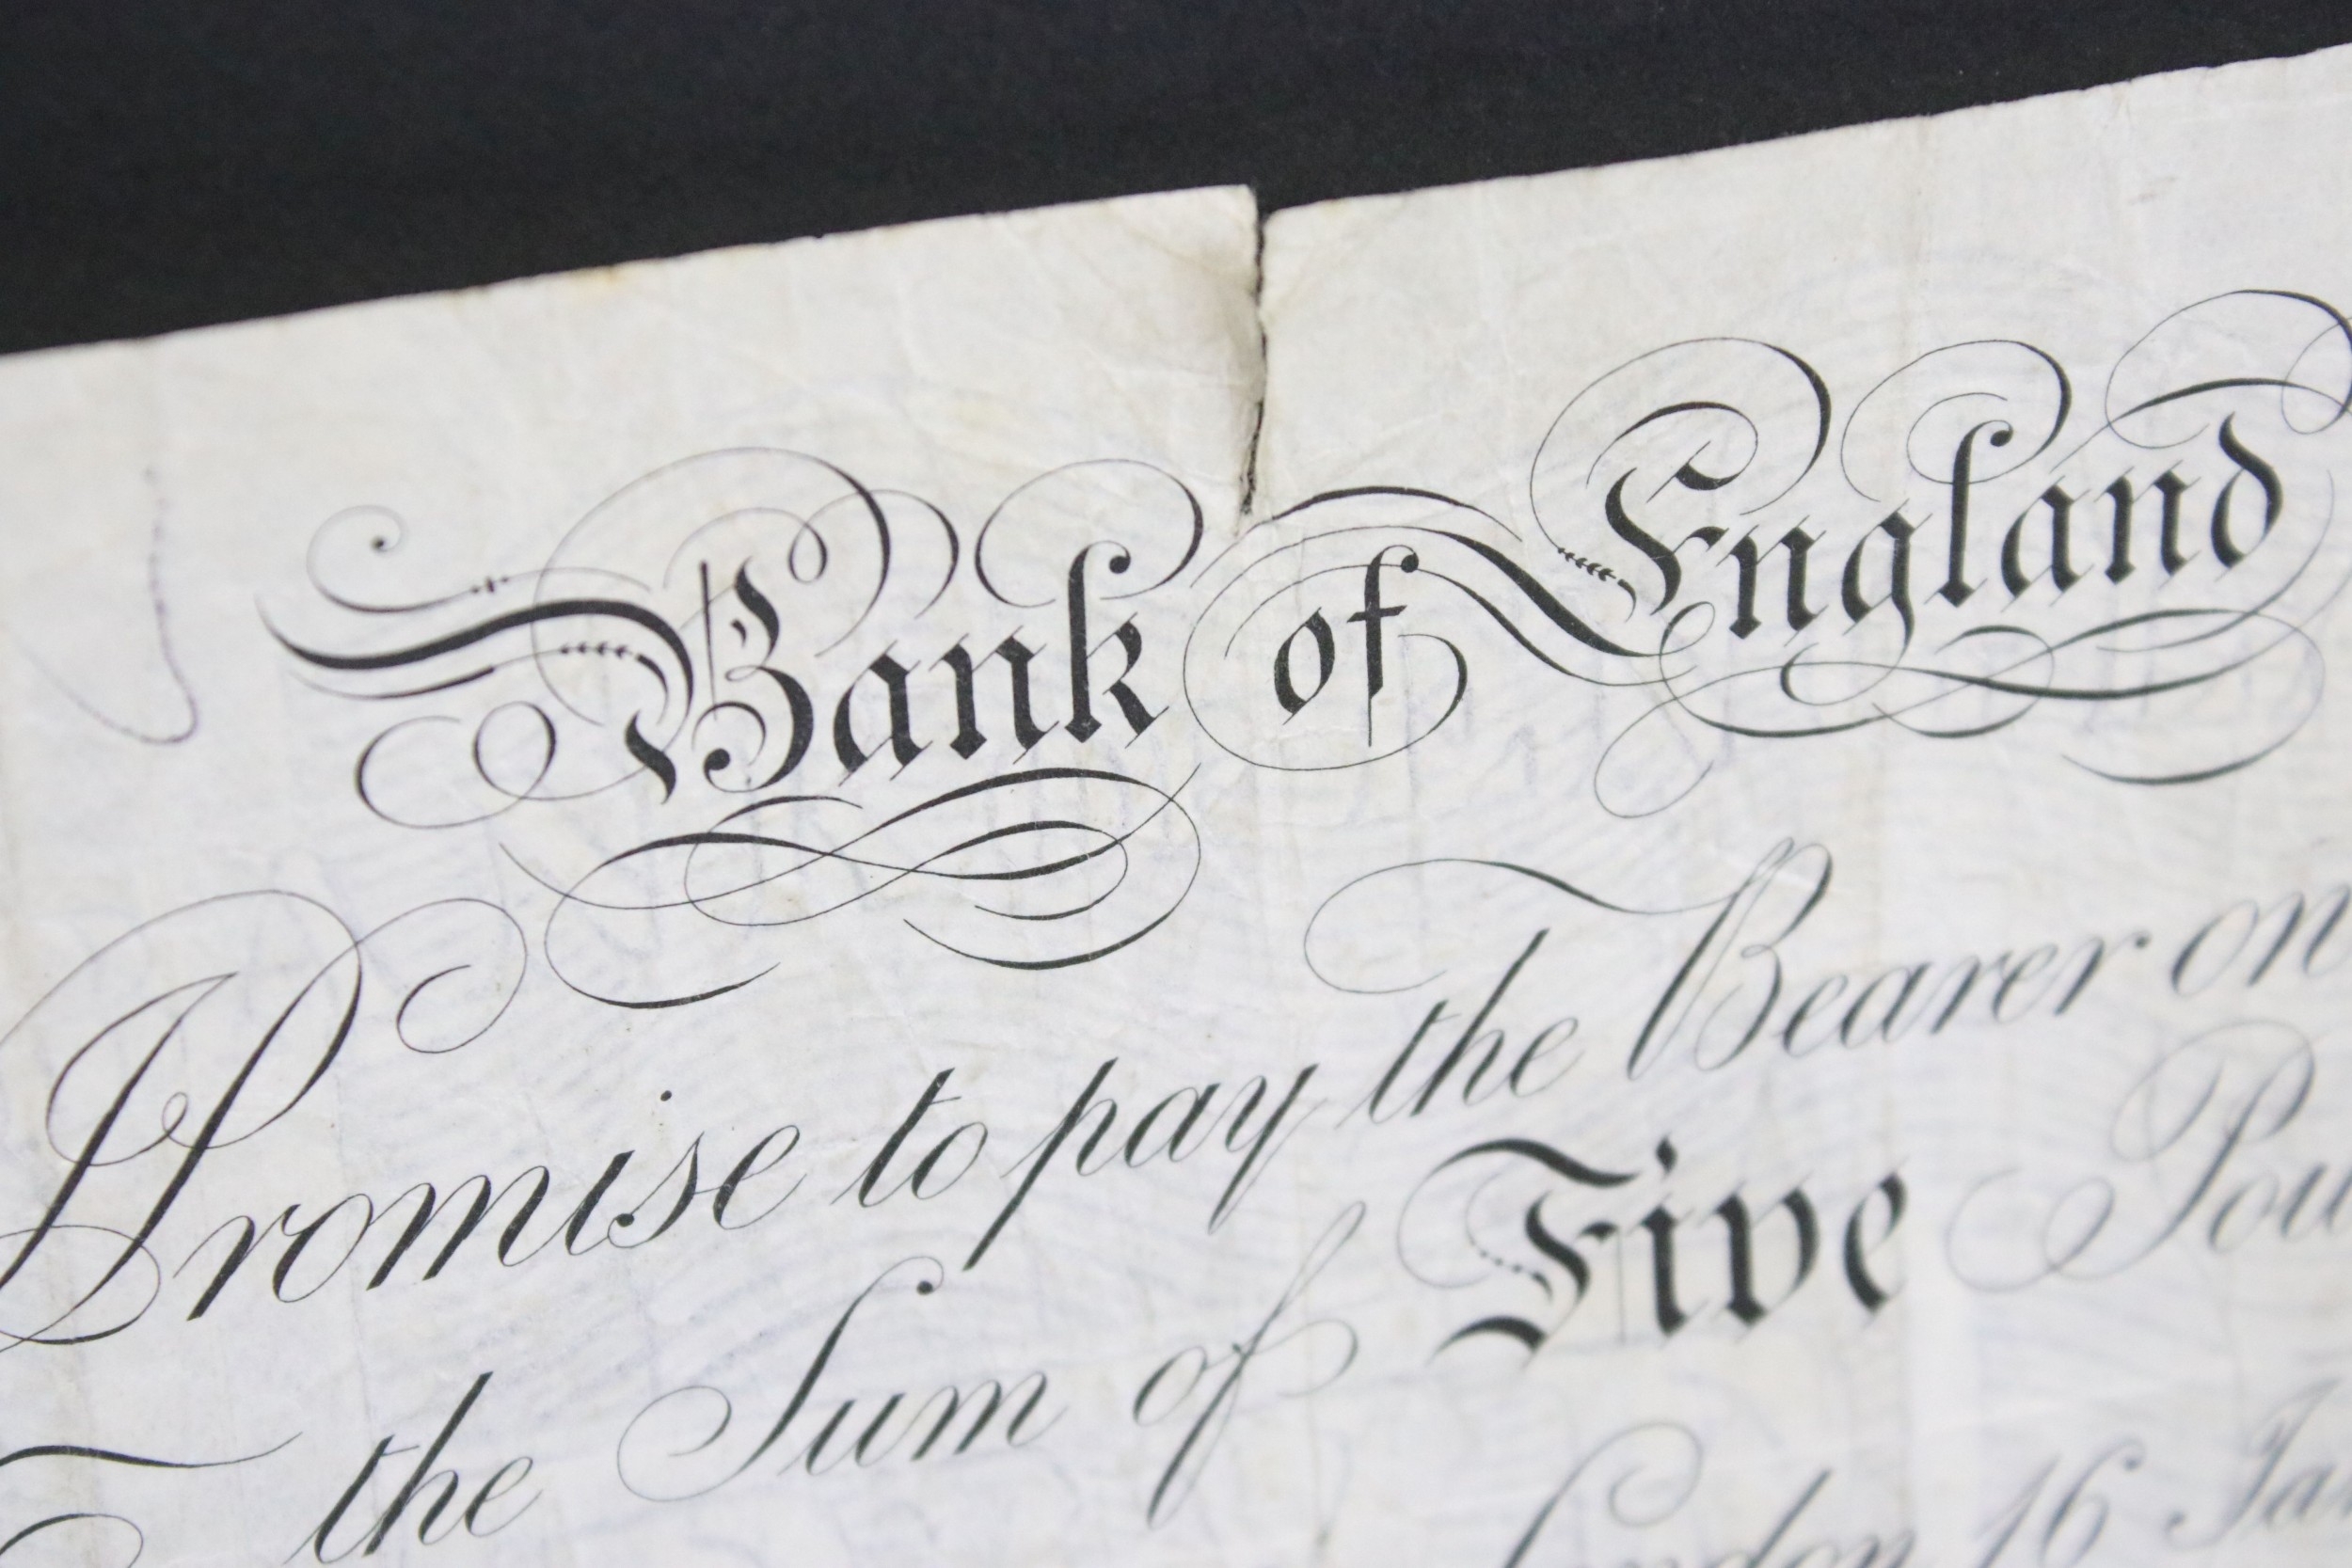 Bank of England
Promise to pay the Bearer on
the Sum of Five
London 16